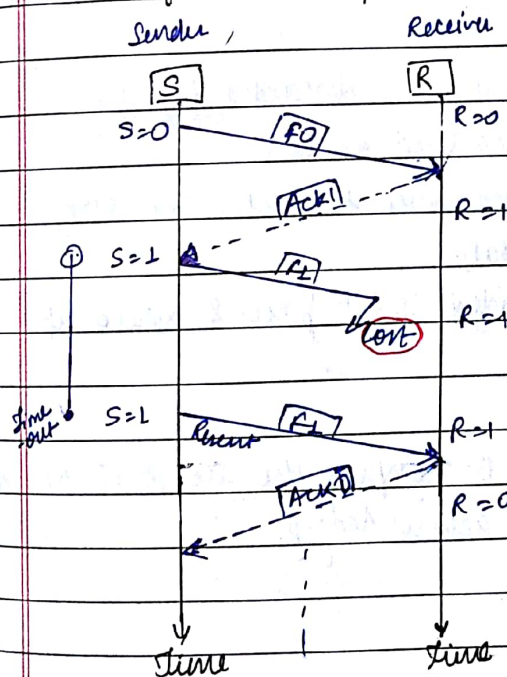 Sender, Receiver
S R
S=0 F0 R=0
Ack1 R=1
S=1 F1
Lost R=1
Time
-out S=1 F1 R=1
Resent
ACK0 R=0
Time Time